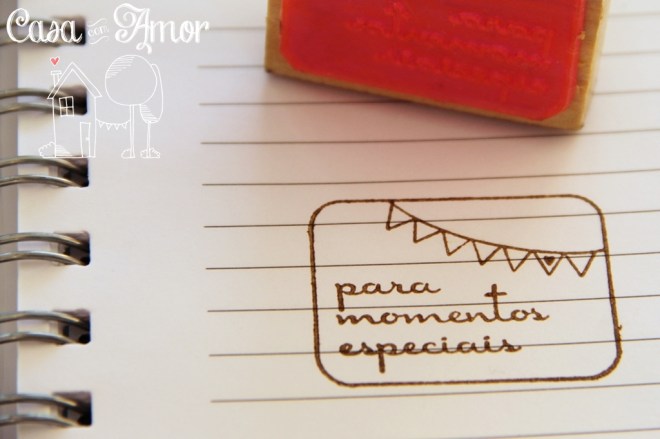 Casa com Amor
para
momentos
especiais